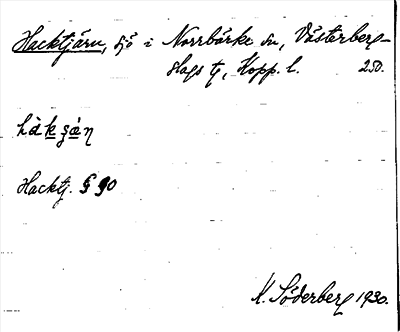 Hacktjärn, sjö i Norrbärke sn, Västerberg-
slags tg, Kopp. l. 250.
hàkʂán
Hacktj. § 90
K. Söderberg 1930.